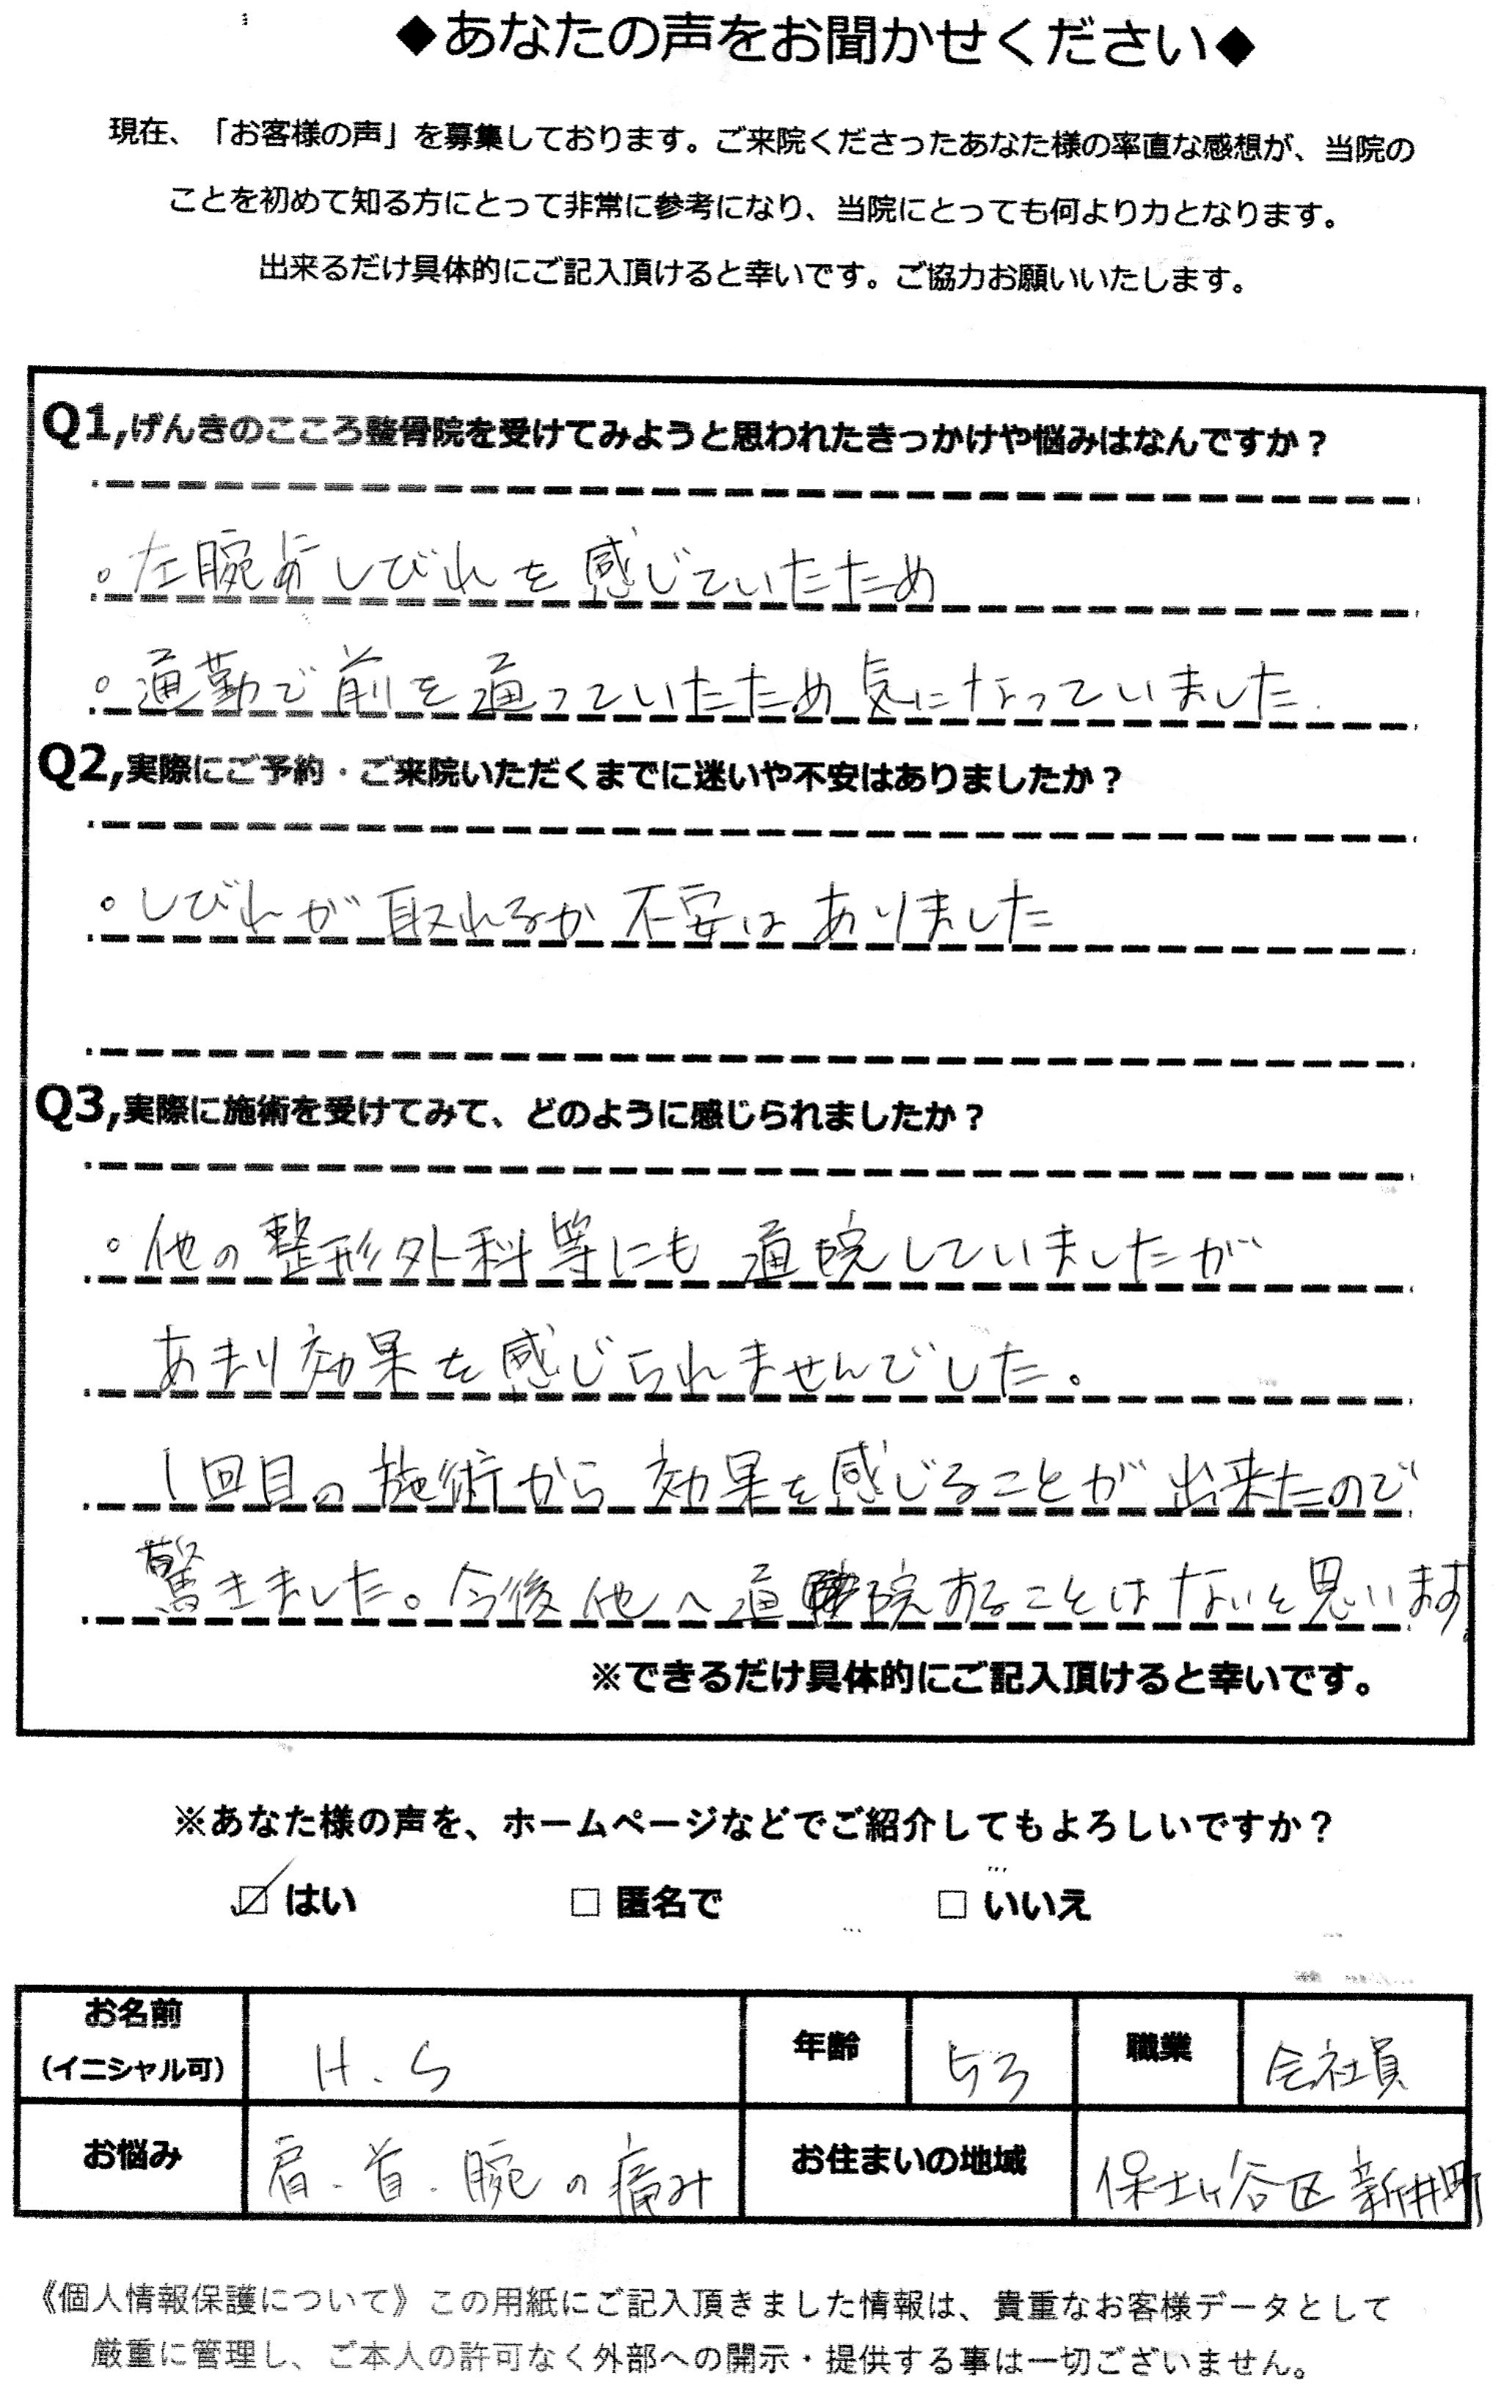 ◆あなたの声をお聞かせください◆
現在、「お客様の声」を募集しております。ご来院くださったあなた様の率直な感想が、当院の
ことを初めて知る方にとって非常に参考になり、当院にとっても何より力となります。
出来るだけ具体的にご記入頂けると幸いです。ご協力お願いいたします。
Q1,げんきのこころ整骨院を受けてみようと思われたきっかけや悩みはなんですか？
。左腕 しびれを感じていたため
。通勤で前を通っていたため気になっていました.
Q2,実際にご予約・ご来院いただくまでに迷いや不安はありましたか？
。しびれが取れるか不安はありました
Q3,実際に施術を受けてみて、どのように感じられましたか？
。他の整形外科等にも通院していましたが
あまり効果を感じられませんでした。
1回目の施術から効果を感じることが出来たので
驚きました。今後他へ通院することはないと思います。
※できるだけ具体的にご記入頂けると幸いです。
※あなた様の声を、ホームページなどでご紹介してもよろしいですか？
☑はい □匿名で □いいえ
お名前 (イニシャル可) H.S 年齢 53 職業 会社員
お悩み 肩.首.腕の痛み お住まいの地域 保土ケ谷区新井町
《個人情報保護について》この用紙にご記入頂きました情報は、貴重なお客様データとして
厳重に管理し、ご本人の許可なく外部への開示・提供する事は一切ございません。